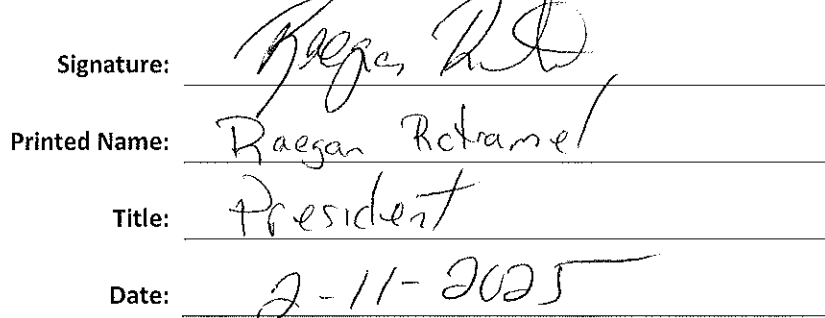 Signature: Raegan
Printed Name: Raegan Rotramel
Title: President
Date: 2-11-2025